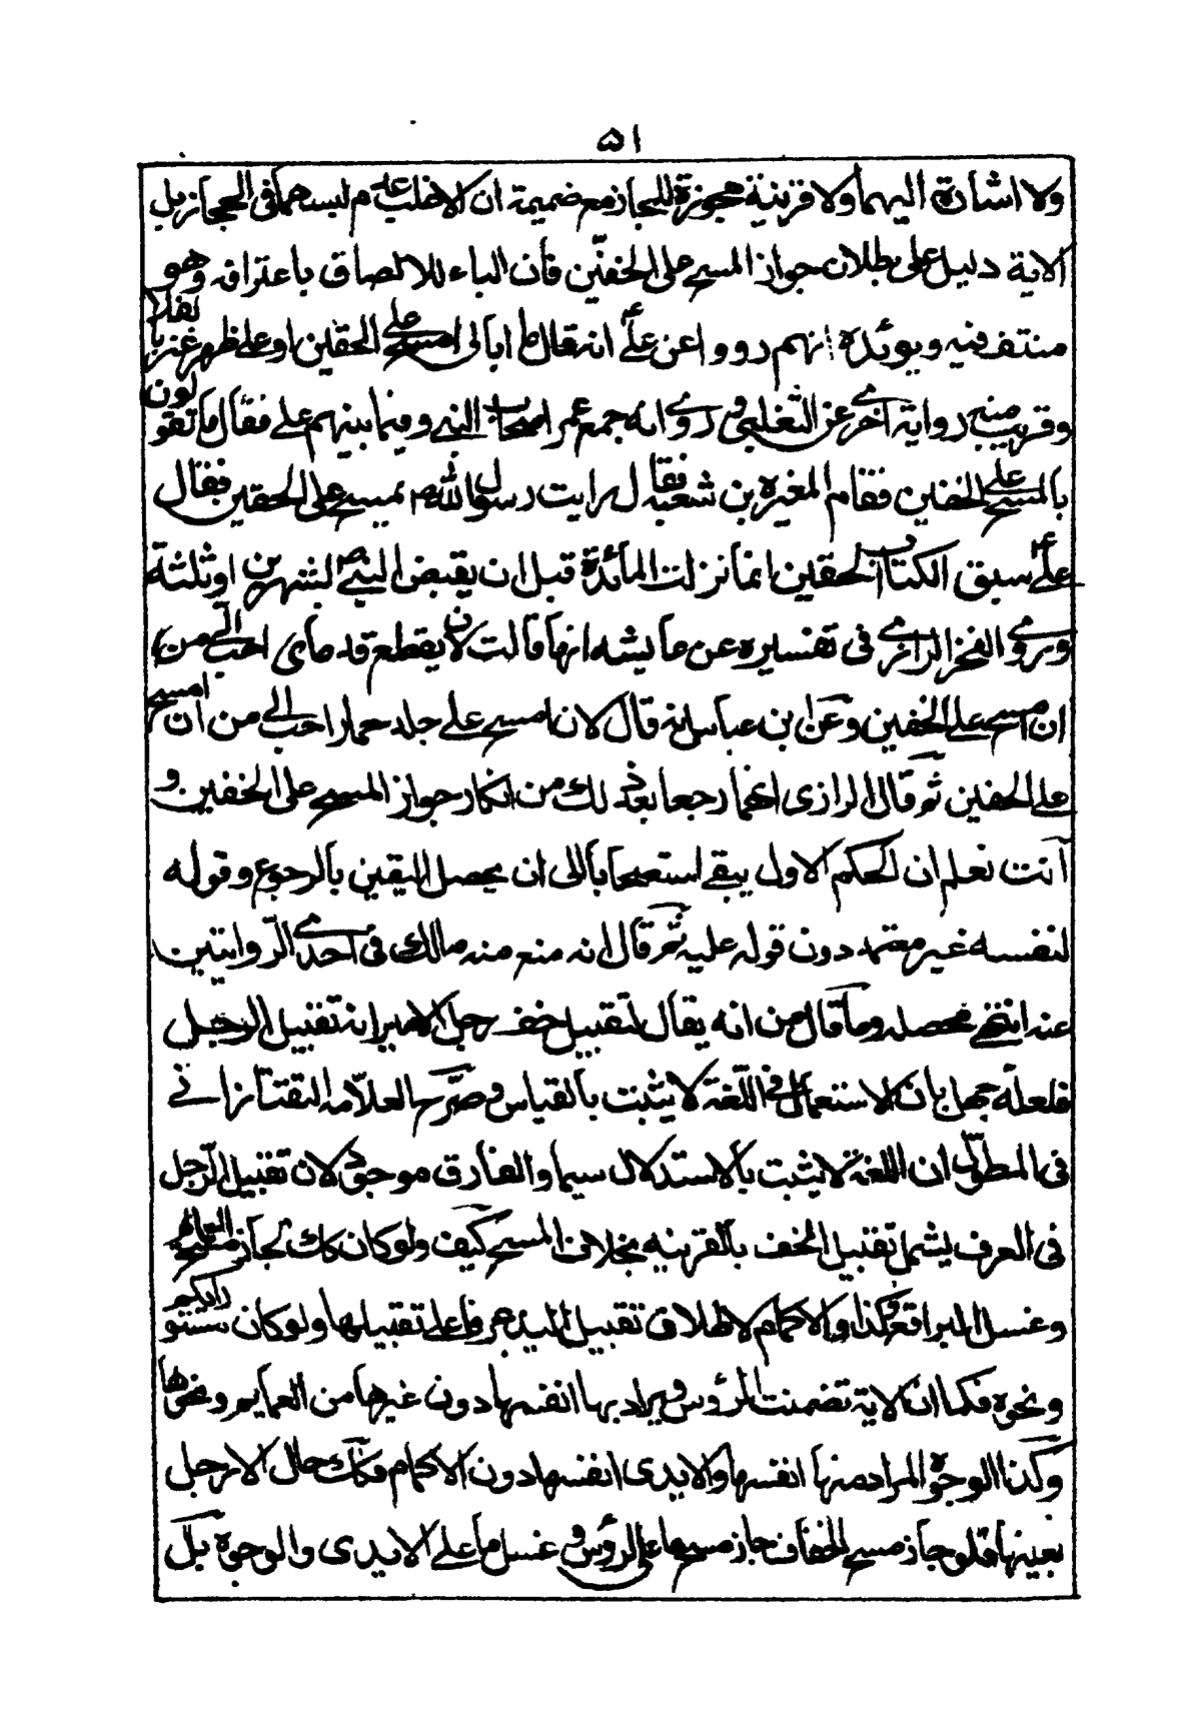 ۵۱
ولا اشارة اليهما ولا قرينة مجوزة للمجاز مع ضميمة ان الاغلب عدم لبسهما فى الحجاز بل
الاية دليل على بطلان جواز المسح على الخفين فان الباء للالصاق باعترافه وهو
منتف فيه ويوئده انهم رووا عن علىؑ انه قال ما ابالى امسح على الخفين او على ظهر عنز بالفلا
وقريب منه رواية اخرى عن الثعلبى وروى انه جمع عمر اصحاب النبى وفيما بينهم على فقال ما تقولون
بالمسح على الخفين فقام المغيرة بن شعبة فقال رايت رسول اللهؐ يمسح على الخفين فقال
علىؑ سبق الكتاب الخفين انما نزلت المائدة قبل ان يقبض النبىؐ لشهرين او ثلثة
وروى الفخر الرازى فى تفسيره عن عايشه انها قالت لان يقطع قدماى احب الى من
ان امسح على الخفين وعن ابن عباس انه قال لان امسح على جلد حمار احب الى من ان امسح
على الخفين ثم قال الرازى انهما رجعا بعد ذلك من انكار جواز المسح على الخفين و
انت تعلم ان الحكم الاول يبقى استصحابا الى ان يحصل اليقين بالرجوع وقوله
لنفسه غير معتمد دون قوله عليه ثم قال انه منع منه مالك فى احدى الروايتين
عنه انتهى محصله وما قال من انه يقال لتقبيل خف رجل الامير انه تقبيل الرجل
فلعله جهل بان الاستعمال فى اللغة لا يثبت بالقياس وصرح العلامه التفتازانى
فى المطول ان اللغة لا يثبت بالاستدلال سيما والفارق موجود لان تقبيل الرجل
فى العرف يشمل تقبيل الخف بالقرينه بخلاف المسح كيف ولو كان كك لجاز مسح العمائم
وغسل البراقع وكذا والاكمام لاطلاق تقبيل اليد عرفا على تقبيلها ولو كان بستور ايديكم
ونحوه فكما ان الاية تضمنت الرؤس ويراد بها انفسها دون غيرها من العمايم ونحوها
وكذا الوجوه المراد منها انفسها والايدى انفسها دون الاكمام فكك حال الارجل
بعينها فلو جاز مسح الخفاف جاز مسح ما على الرؤس و غسل ما على الايدى والوجوه بل